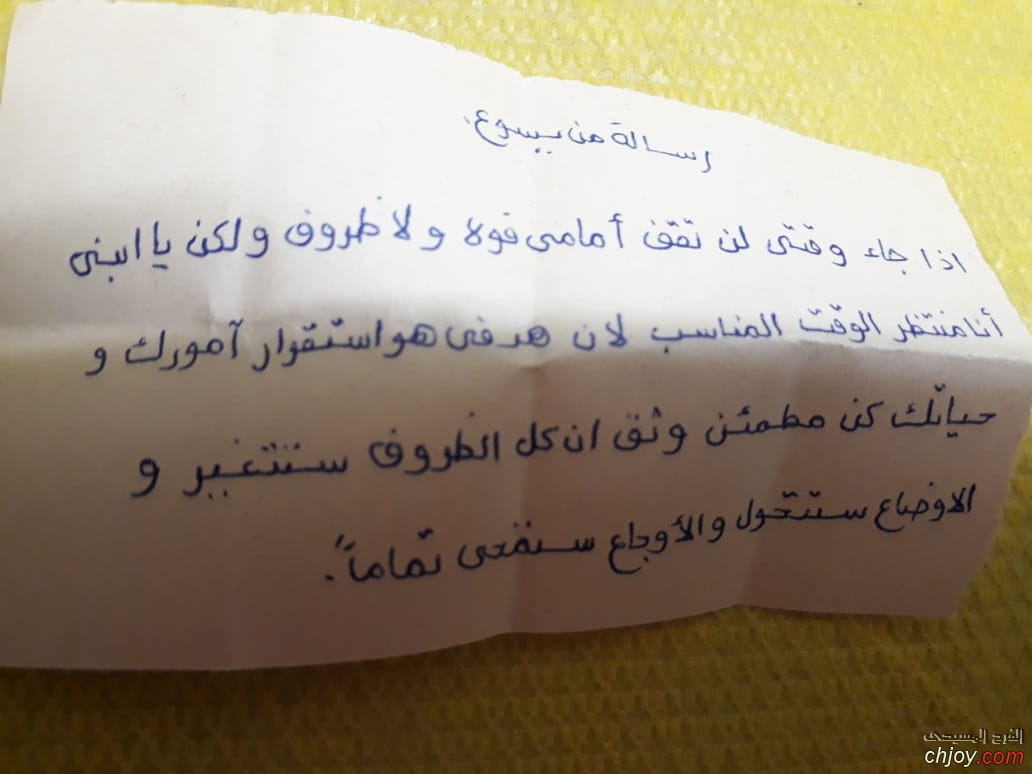 رسالة من يسوع.
اذا جاء وقتى لن تقف أمامى قوة ولا ظروف ولكن يا ابنى
أنا منتظر الوقت المناسب لان هدفى هو استقرار آمورك و
حياتك كن مطمئن وثق ان كل الظروف ستتغير و
الاوضاع ستتحول والأوجاع ستمحى تماماً.
الفرح المسيحى
chjoy.com